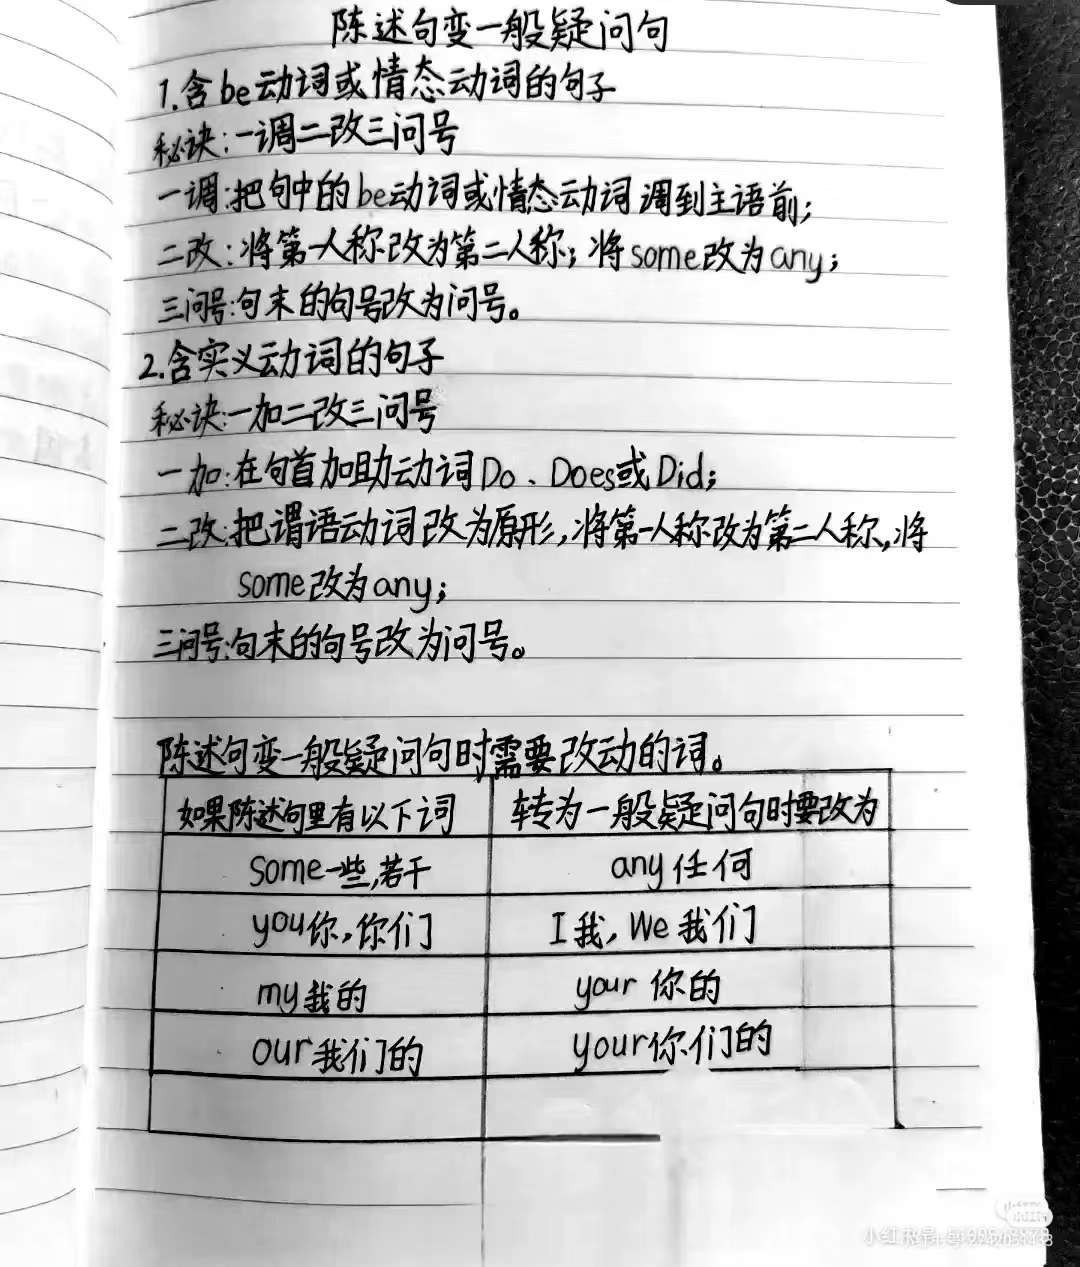 陈述句变一般疑问句
1.含be动词或情态动词的句子
秘诀:一调二改三问号
一调:把句中的be动词或情态动词调到主语前;
二改:将第一人称改为第二人称;将some改为any;
三问号:句末的句号改为问号。
2.含实义动词的句子
秘诀:一加二改三问号
一加:在句首加助动词Do、Does或Did;
二改:把谓语动词改为原形,将第一人称改为第二人称,将
some改为any;
三问号:句末的句号改为问号。
陈述句变一般疑问句时需要改动的词。
如果陈述句里有以下词 转为一般疑问句时要改为
some一些,若干 any任何
you你,你们 I我,We我们
my我的 your你的
our我们的 your你们的
小红书号: